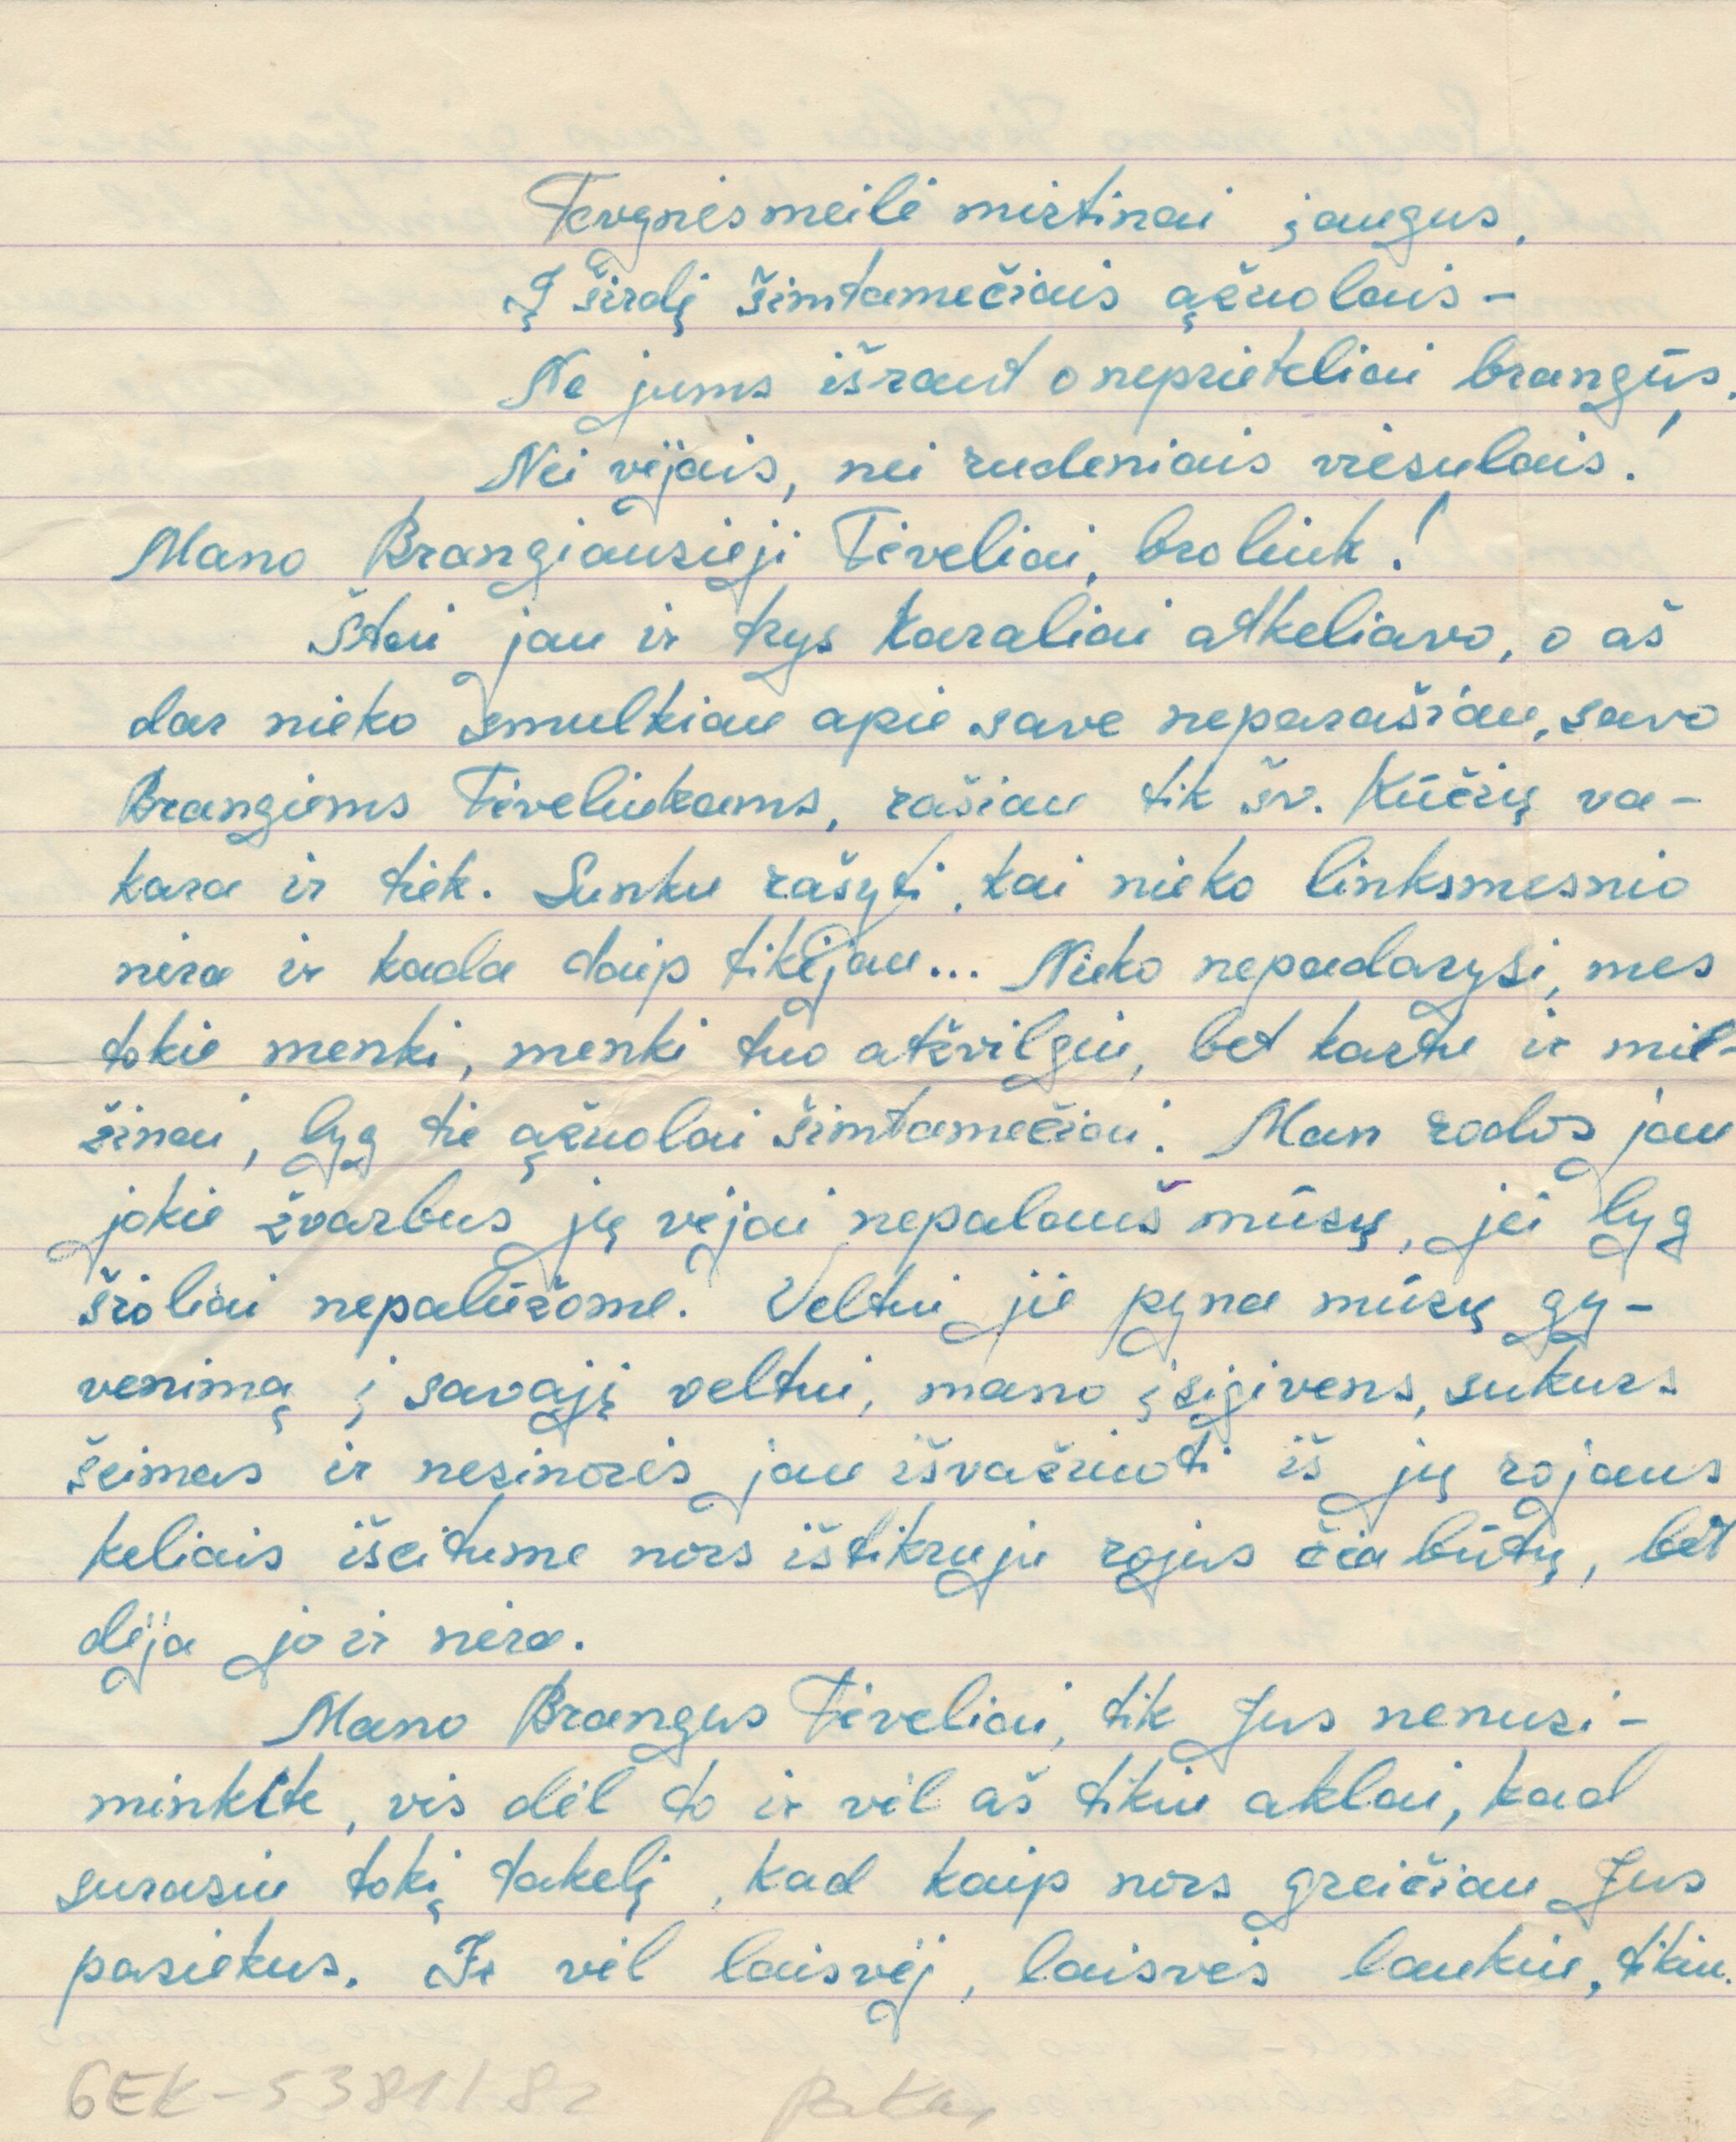 Tevynės meilė mirtinai įaugus,
Į širdį šimtamečiais ąžuolais –
Ne jums išraut o neprieteliai brangūs,
Nei vėjais, nei rudeniais viesulais!
Mano Brangiausieji Tėveliai, broliuk!
Štai jau ir trys Karaliai atkeliavo, o aš
dar nieko smulkiau apie save neparašiau, savo
Brangiems Tėveliukams, rašiau tik šv. Kūčių va-
kara ir tiek. Sunku rašyti, kai nieko linksmesnio
nėra ir kada taip tikėjau... Nieko nepadarysi, mes
tokie menki, menki tuo atžvilgiu, bet kartu ir mil-
žinai, lyg tie ąžuolai šimtamečiai. Man rodos jau
jokie žvarbus jų vėjai nepalauš mūsų, jei lyg
šioliai nepalūžome. Veltui jie pyna mūsų gy-
venimą į savąjį veltui, mano įsigivens, sukurs
šeimas ir nesinorės jau išvažiuoti iš jų rojaus
keliais išeitume nors ištikruju rojus čia būtų, bet
dėja jo ir nėra.
Mano Brangus Tėveliai, tik Jus nenusi-
minkite, vis dėl to ir vėl aš tikiu aklai, kad
surasiu tokį takelį, kad kaip nors greičiau Jus
pasiekus. Ir vėl laisvėj, laisvės laukiu, tikiu.
GEK-5381/82